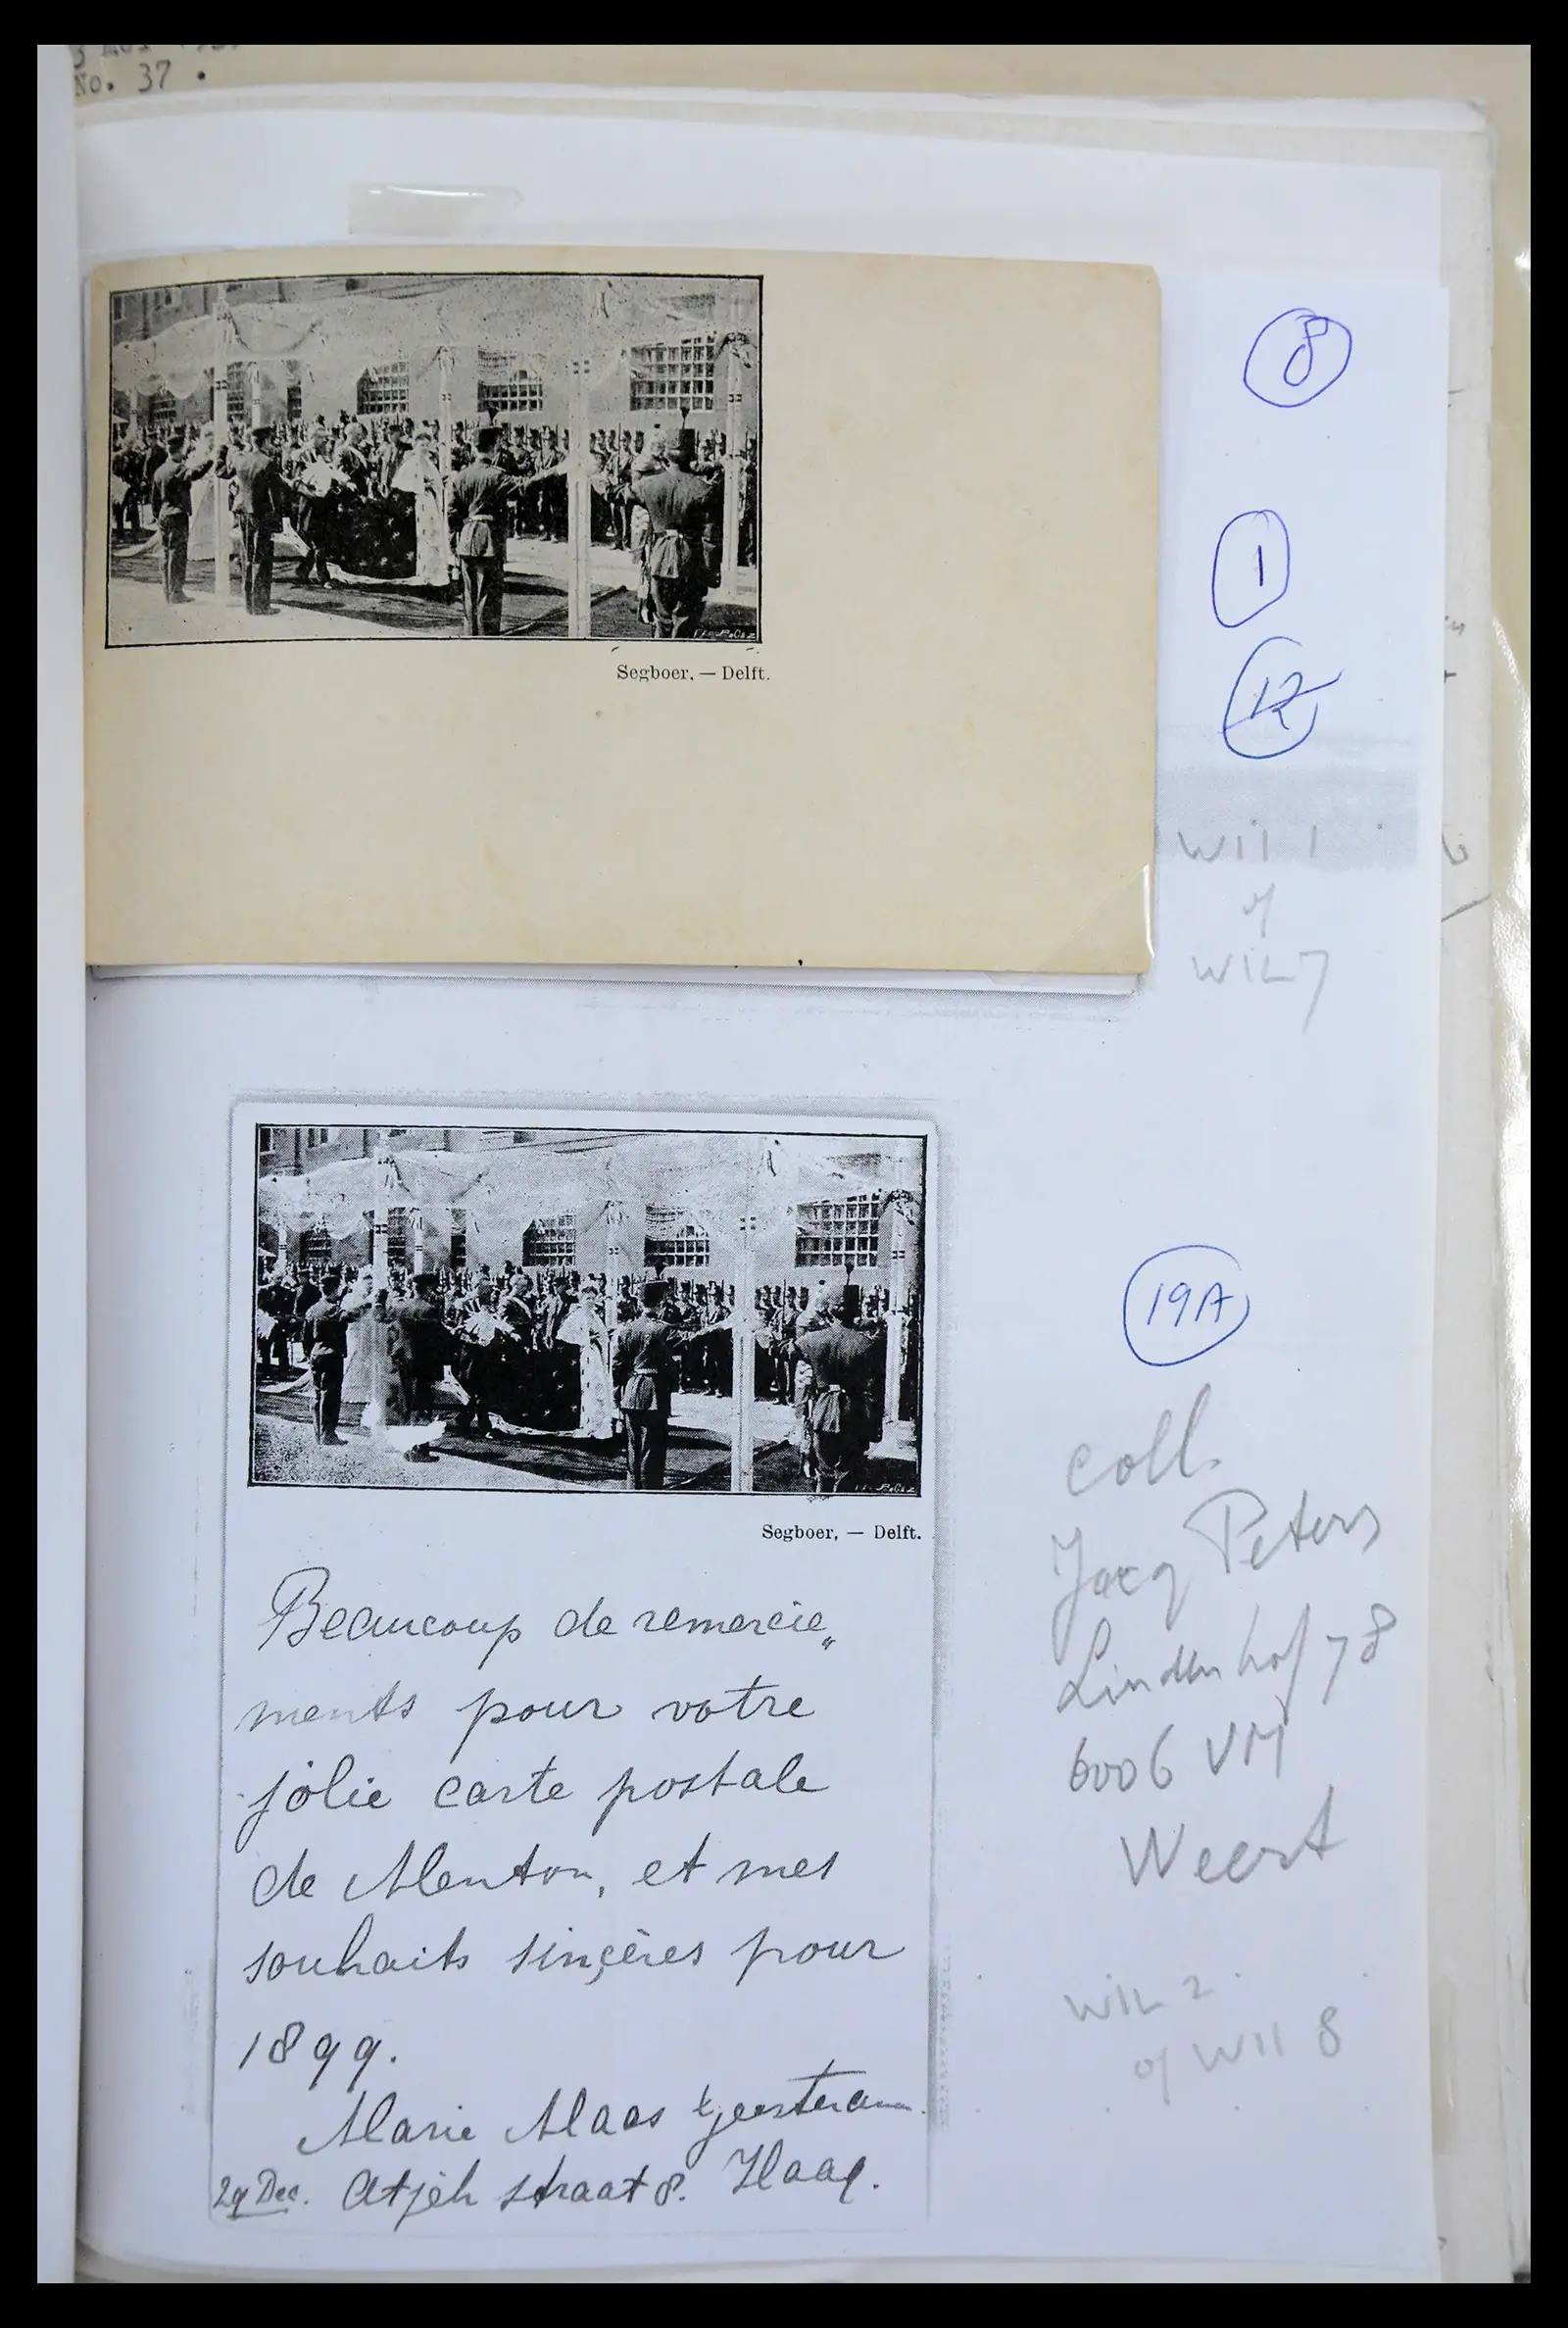 No. 37.
8
1
12
Segboer, — Delft.
WIL 1
of
WIL 7
19A
Segboer, — Delft.
coll.
Jacq Peters
Lindenhof 78
6006 VM
Weert
Beaucoup de remercie„
ments pour votre
jolie carte postale
de Menton, et mes
souhaits sincères pour
1899.
Marie Maas
29 Dec. Atjéh straat 8. Haag.
WIL 2
of WIL 8